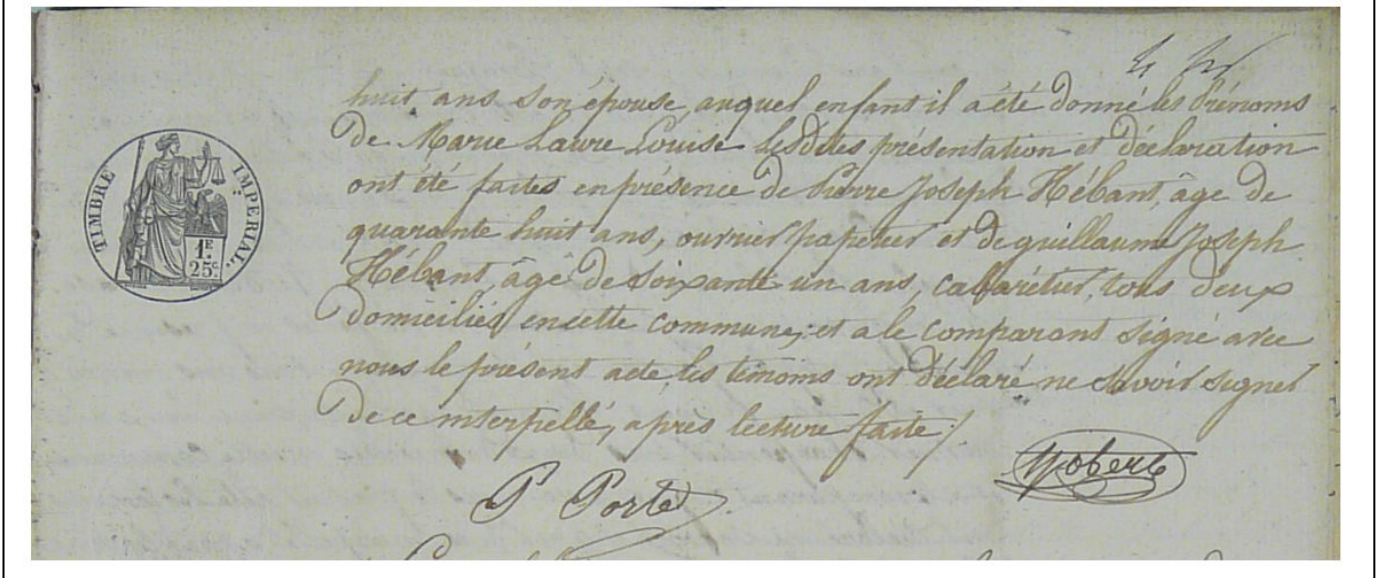 huit ans son épouse, auquel enfant il a été donné les Prénoms
de Marie Laure Louise Lesdites présentation et déclaration
ont été faites en présence de Pierre Joseph Hébant, âgé de
quarante huit ans, ouvrier papetier et de guillaume Joseph
Hébant, âgé de soixante un ans, cabarétier, tous deux
domiciliés en cette commune; et a le comparant signé avec
nous le présent acte, les témoins ont déclaré ne savoir signer
de ce interpellé, après lecture faite /.
TIMBRE IMPERIAL.
1E.
25c.
P Porte